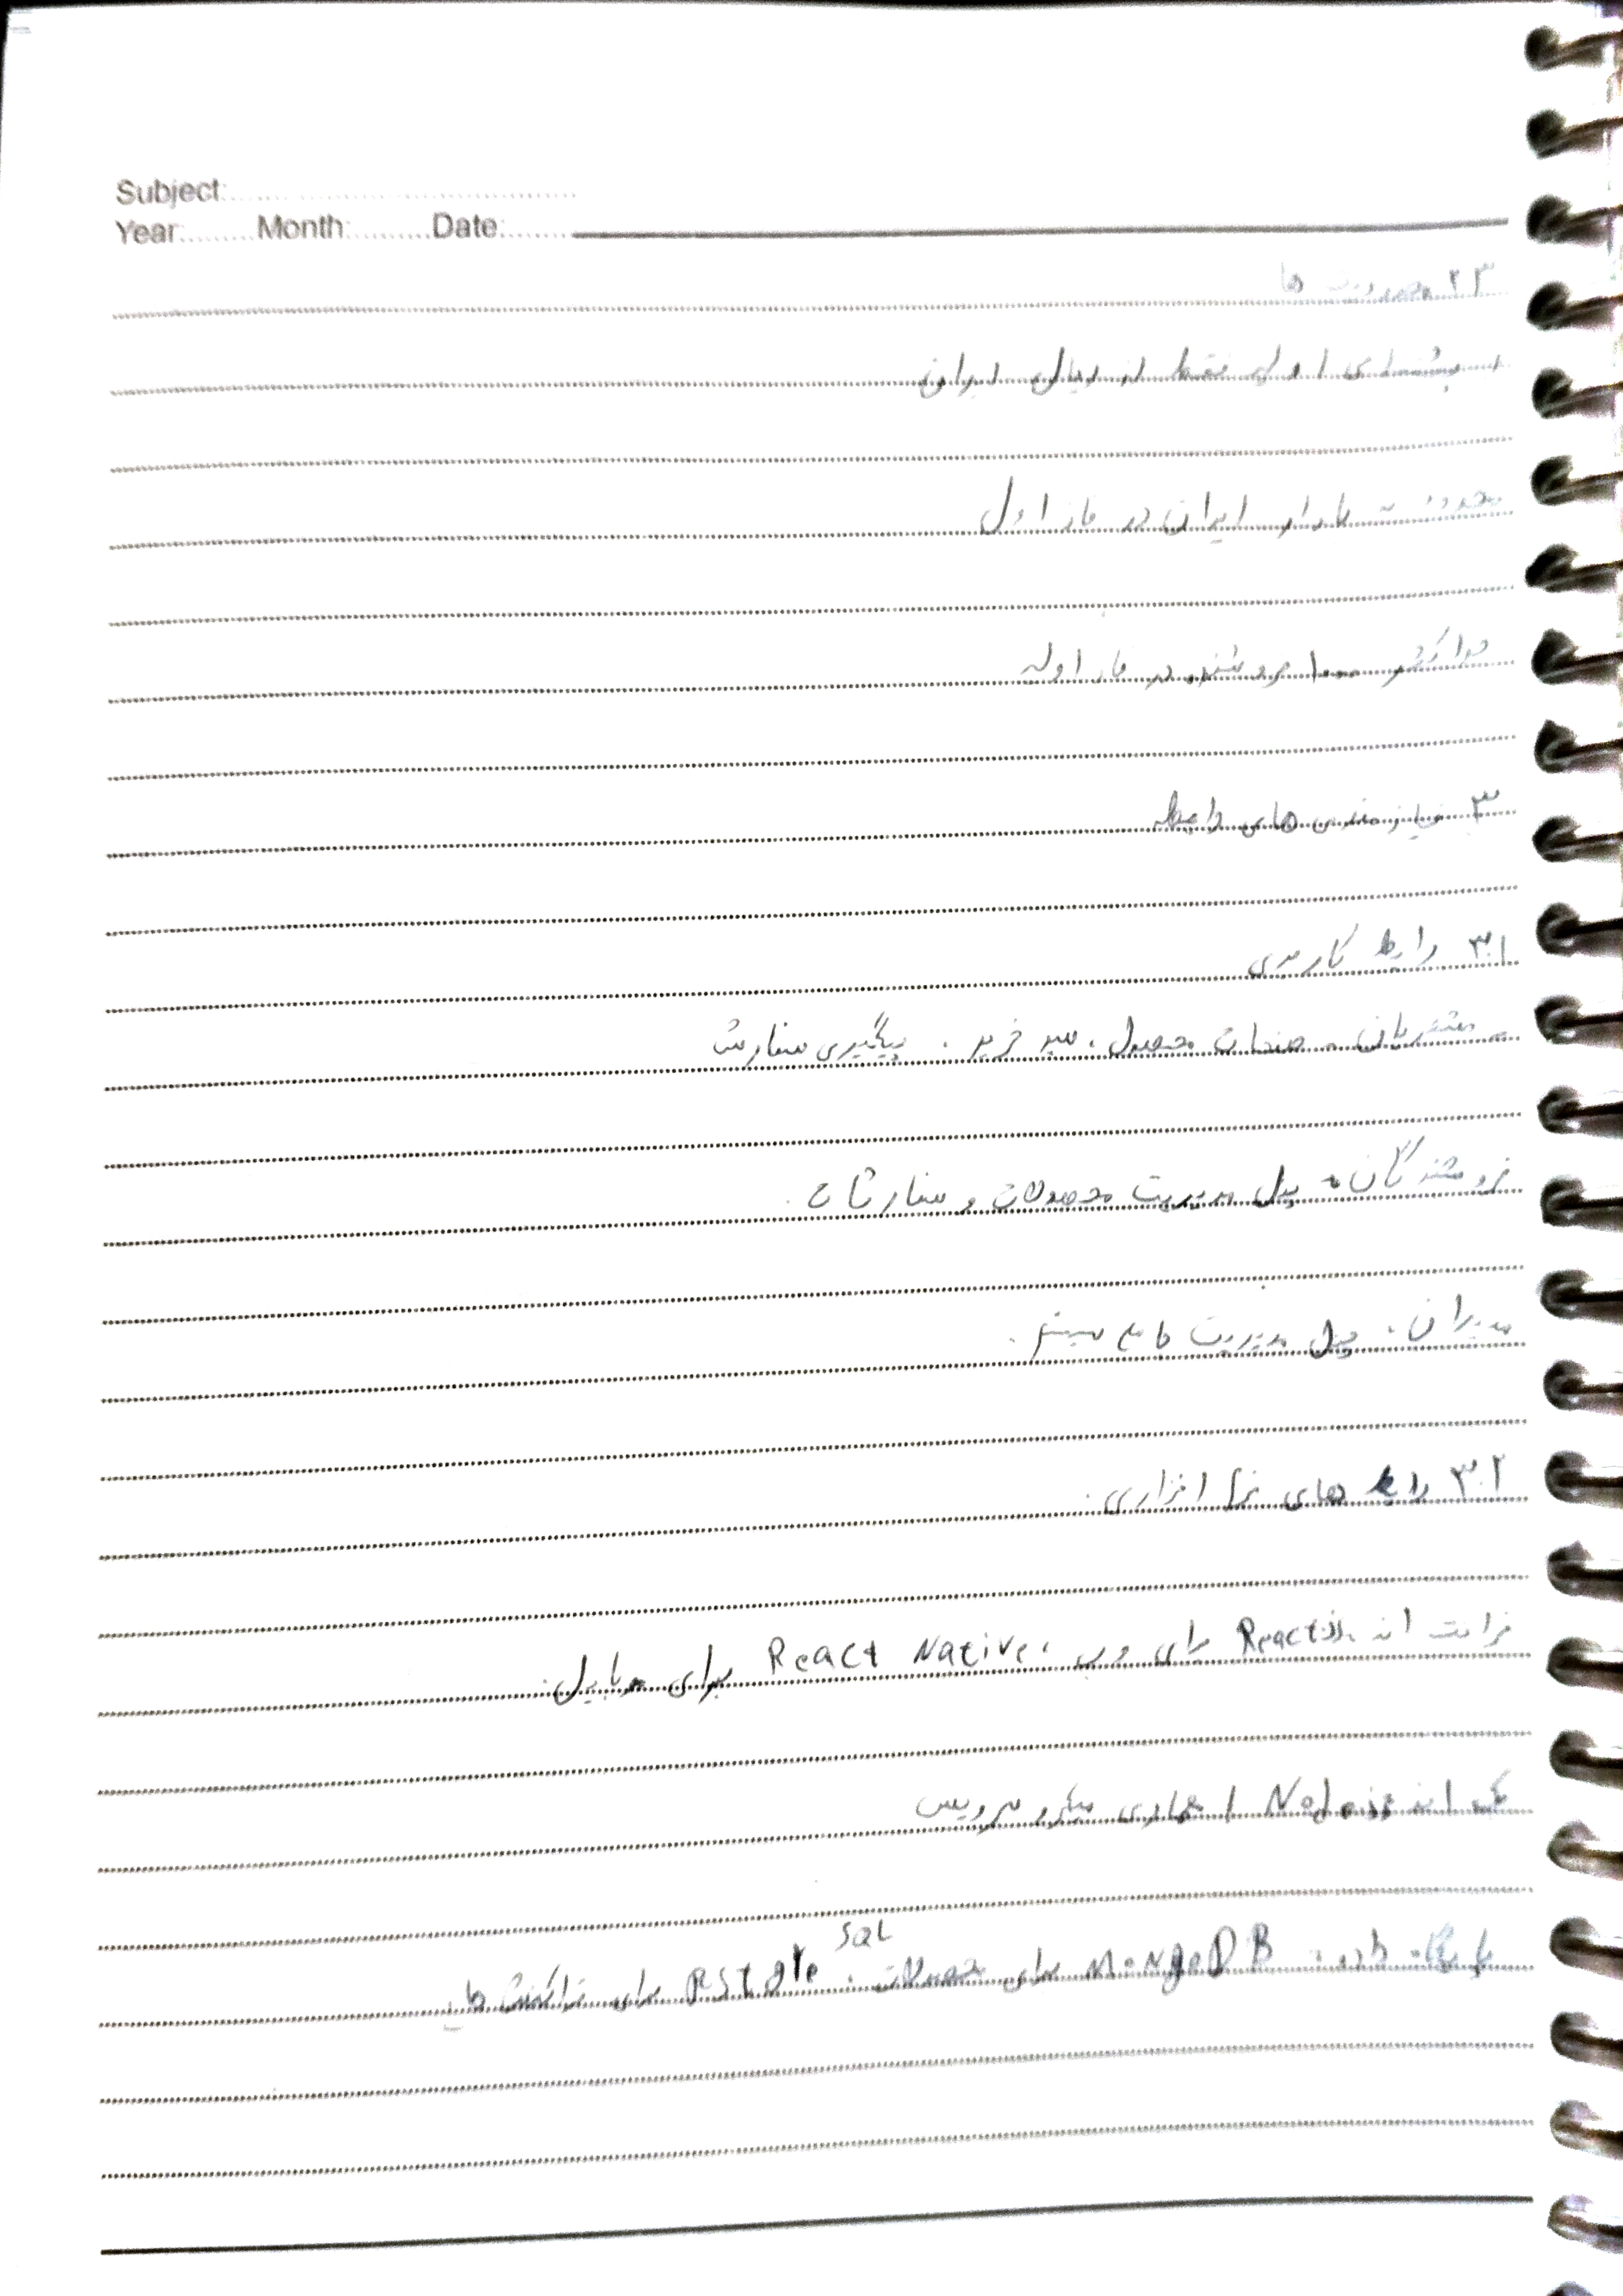 Subject:
Year: Month: Date:
۲.۳ محدودیت ها
پشتیبانی اولیه فقط از ریال ایران
محدود به بازار ایران در فاز اول
حداکثر ۱۰۰۰۰ فروشنده در فاز اولیه
۳ نیازمندی های رابط
۳.۱ رابط کاربری
مشتریان - صفحات محصول ، سبد خرید ، پیگیری سفارش
فروشندگان - پنل مدیریت محصولات و سفارشات .
مدیران : پنل مدیریت جامع سیستم .
۳.۲ رابط های نرم افزاری .
فرانت اند React.js برای وب ، React Native برای موبایل .
بک اند Node.js معماری میکروسرویس
پایگاه داده : MongoDB برای محصولات ، SQL برای تراکنش ها